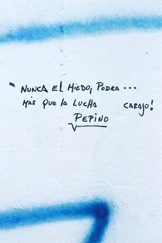 " NUNCA EL MIEDO, PODRA ...
MÁS QUE LA LUCHA CARAJO!
PEPINO